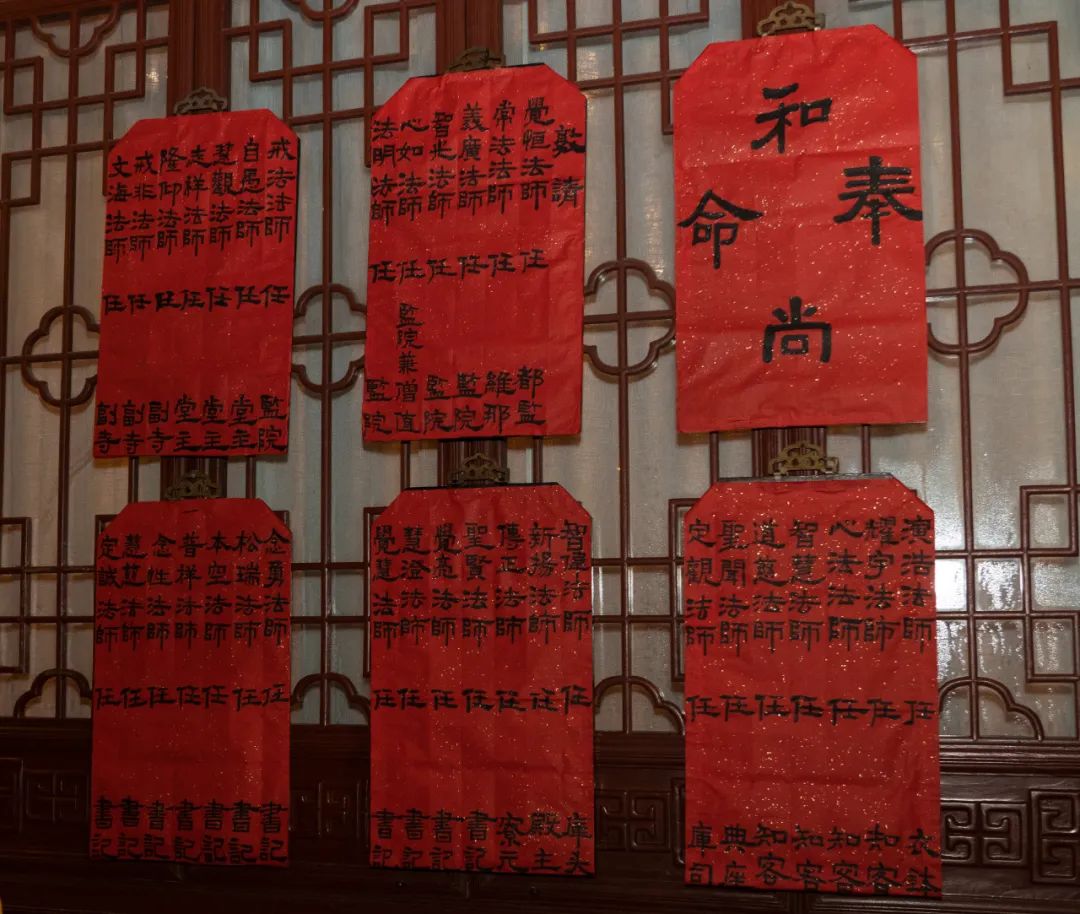 奉
和尚
命
敦請
覺恒法師 任 都監
常法法師 任 維那
義廣法師 任 監院
智光法師 任 監院
心如法師 任 監院兼僧值
法明法師 任 監院
戒法法師 任 監院
自愚法師 任 堂主
慧觀法師 任 堂主
志祥法師 任 堂主
隆仰法師 任 副寺
戒非法師 任 副寺
文海法師 任 副寺
演浩法師 任 衣鉢
耀宇法師 任 知客
心法法師 任 知客
智慧法師 任 知客
道慈法師 任 知客
聖聞法師 任 典座
定觀法師 任 庫司
智法師 任 庫头
新揚法師 任 殿主
傳正法師 任 寮元
聖賢法師 任 書記
覺亮法師 任 書記
慧澄法師 任 書記
覺慧法師 任 書記
念勇法師 任 書記
松瑞法師 任 書記
本空法師 任 書記
普祥法師 任 書記
念性法師 任 書記
慧法師 任 書記
定誠法師 任 書記